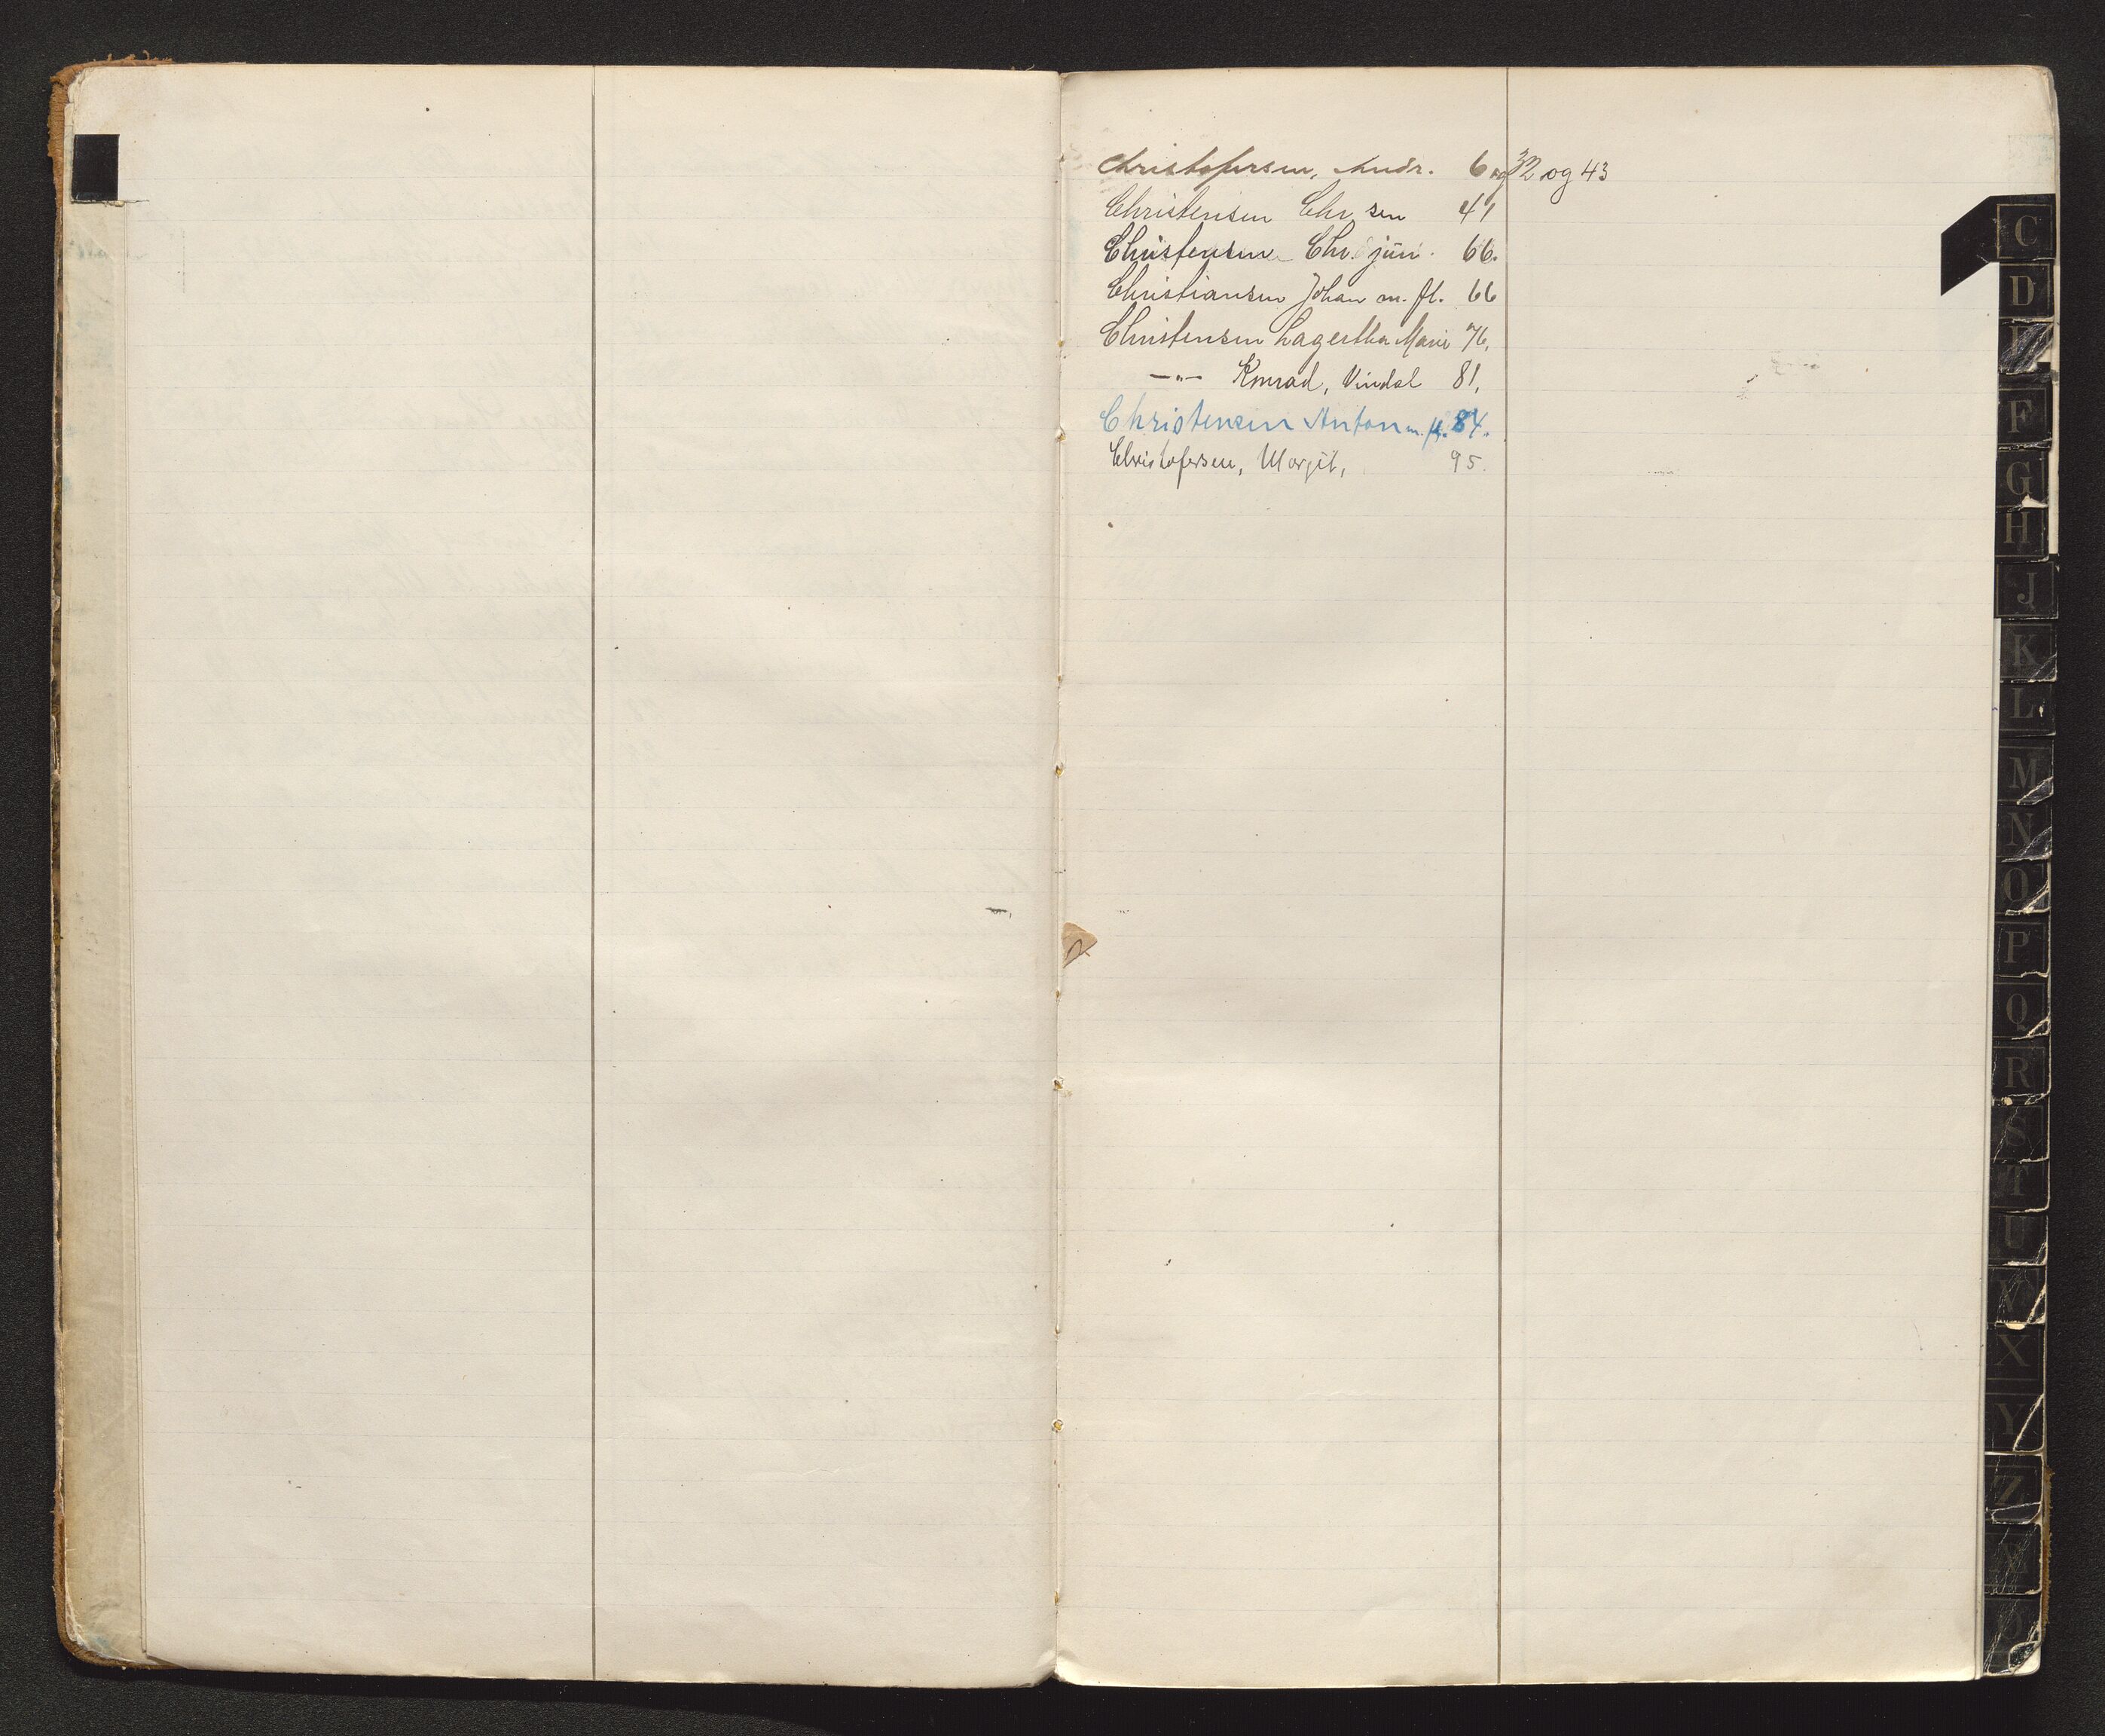 Christofersen, Andr. 6 og 32 og 43
Christensen Chr. sen 41
Christensen Chr. jun. 66.
Christiansen Johan m. fl. 66
Christensen Lagertha Marie 76,
—„— Konrad, Vindal 81,
Christensen Anton m. fl. 84.
Christofersen, Margit, 95.
C
D
F
G
H
J
K
L
M
N
O
P
Q
R
S
T
U
V
X
Y
Z